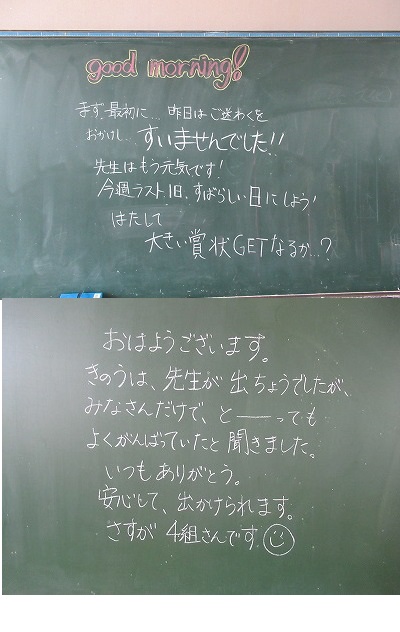 good morning!
まず、最初に… 昨日はご迷わくを
おかけし… すいませんでした!!
先生はもう元気です!
今週ラスト1日、すばらしい日にしよう!
はたして
大きい賞状GETなるか…?
おはようございます。
きのうは、先生が出ちょうでしたが、
みなさんだけで、と───っても
よくがんばっていたと聞きました。
いつもありがとう。
安心して、出かけられます。
さすが 4組さんです。